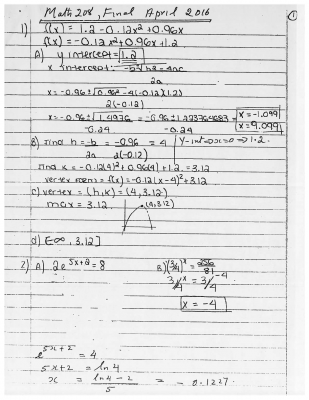 Math 208, Final April 2016
①
1) f(x) = 1.2 - 0.12x² + 0.96x
f(x) = -0.12x² + 0.96x + 1.2
A) y intercept = 1.2
x intercept: -b±√b²-4ac
2a
x = -0.96 ± √0.96² - 4(-0.12)(1.2)
2(-0.12)
x = -0.96 ± √1.4976 = -0.96 ± 1.223764683
-0.24 -0.24
x = -1.0991
x = 9.0991
B) find h = -b = -0.96 = 4 y-int → x=0 → 1.2.
2a 2(-0.12)
find k = -0.12(4)² + 0.96(4) + 1.2 = 3.12
vertex form = f(x) = -0.12(x-4)² + 3.12
C) vertex = (h,k) = (4, 3.12)
max = 3.12 (4, 3.12)
d) [-∞, 3.12]
2) A) 2e^(5x+2) = 8 B) (3/4)^x = 256/81
3/4^x = 3/4^-4
x = -4
e^(5x+2) = 4
5x+2 = ln 4
x = ln 4 - 2 = -0.1227.
5